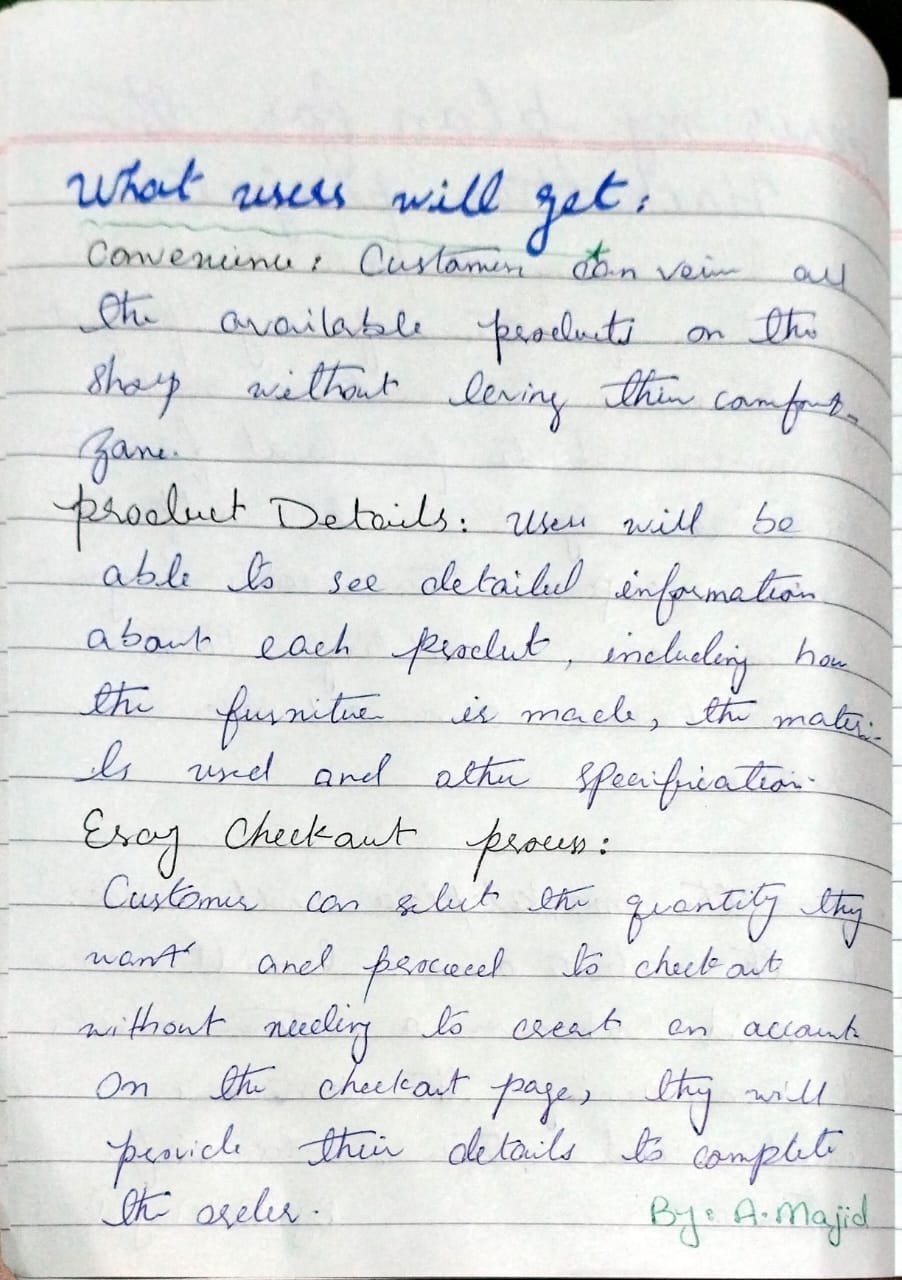 What users will get:
Convenience: Customers can veiw all
the available products on the
shop without leving their comfort
zone.
product Details: Users will be
able to see detailed information
about each product, including how
the furniture is made, the materi-
ls used and other specification.
Esay Checkout process:
Customer can select the quantity they
want and proceed to checkout
without needing to creat an account
On the checkout page, they will
provide their details to complete
the order.
By: A.Majid